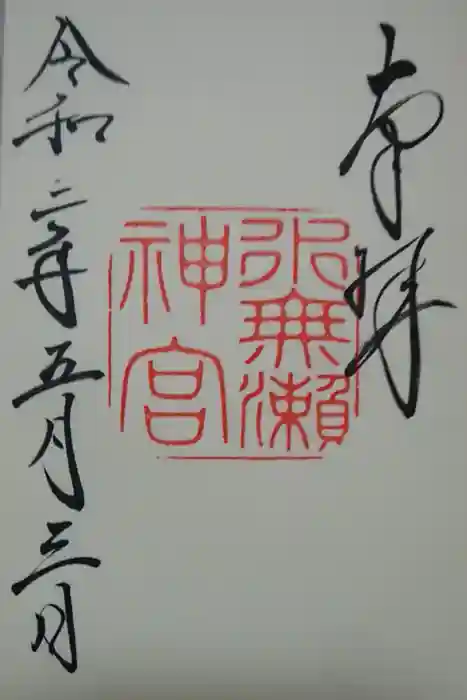 奉拝
水無瀬
神宮
令和二年五月三日